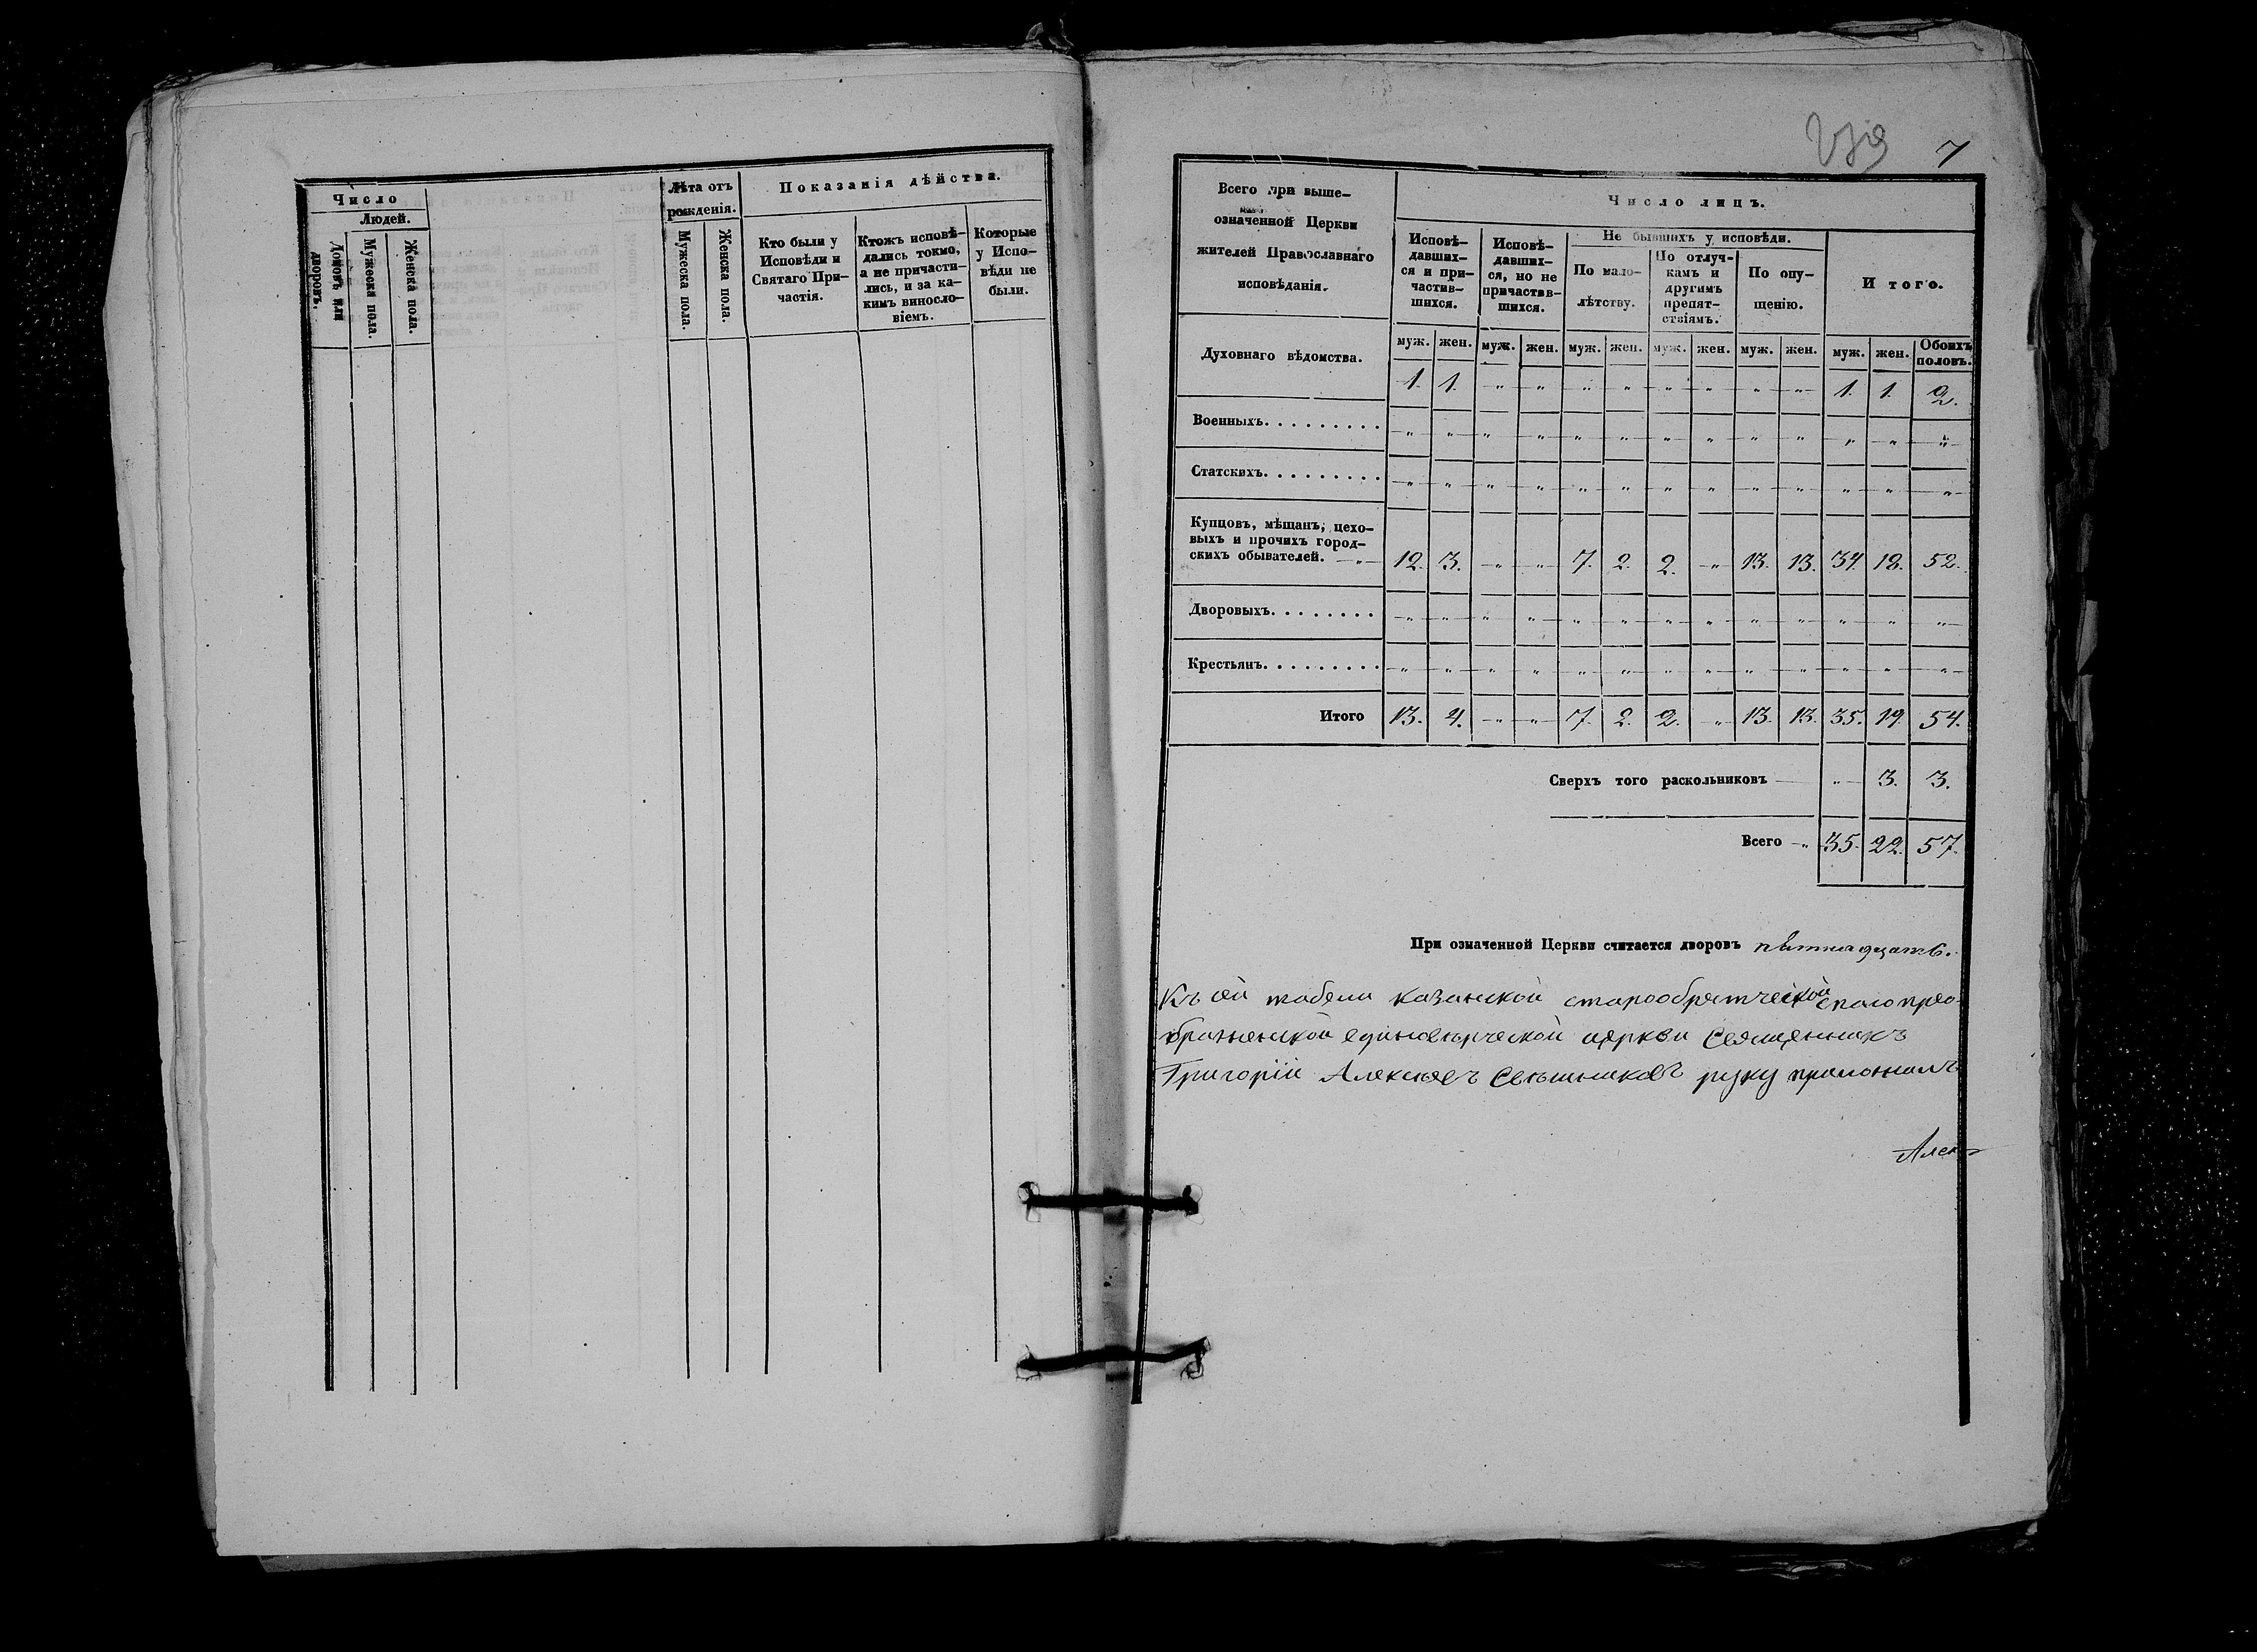 Число
Людей.
Домовъ или дворовъ.
Мужеска пола.
Женска пола.
Лѣта отъ
рожденія.
Мужеска пола.
Женска пола.
Показанія дѣйства.
Кто были у
Исповѣди и
Святаго При-
частія.
Ктожъ исповѣ-
дались токмо,
а не причасти-
лись, и за ка-
кимъ винсло-
віемъ.
Которые
у Испо-
вѣди не
были.
7
Всего при выше-
означенной Церкви
жителей Православнаго
исповѣданія.
Число лицъ.
Исповѣ-
давших-
ся и при-
частив-
шихся.
Исповѣ-
давших-
ся, но не
причастив-
шихся.
Не бывшихъ у исповѣди.
По мало-
лѣтству.
По отлуч-
камъ и
другимъ
препят-
ствіямъ.
По опу-
щенію.
И того.
муж. жен. муж. жен. муж. жен. муж. жен. муж. жен. муж. жен. Обоихъ половъ.
Духовнаго вѣдомства. 1. 1. " " " " " " " " 1. 1. 2.
Военныхъ. . . . . . . . . " " " " " " " " " " " " "
Статскихъ. . . . . . . . . " " " " " " " " " " " " "
Купцовъ, мѣщанъ, цехо-
выхъ и прочихъ город-
скихъ обывателей. 12. 3. " " 7. 2. 2. " 13. 13. 34. 18. 52.
Дворовыхъ. . . . . . . . " " " " " " " " " " " " "
Крестьянъ. . . . . . . . . " " " " " " " " " " " " "
Итого 13. 4. " " 7. 2. 2. " 13. 13. 35. 19. 54.
Сверхъ того раскольниковъ " 3. 3.
Всего 35. 22. 57.
При означенной Церкви считается дворовъ пятнадцать.
Къ сей табели казанской старообрятческой спасопрео-
браженской единоверческой церкви Священникъ
Григорій Алексѣевъ Свѣшниковъ руку приложилъ
Алек